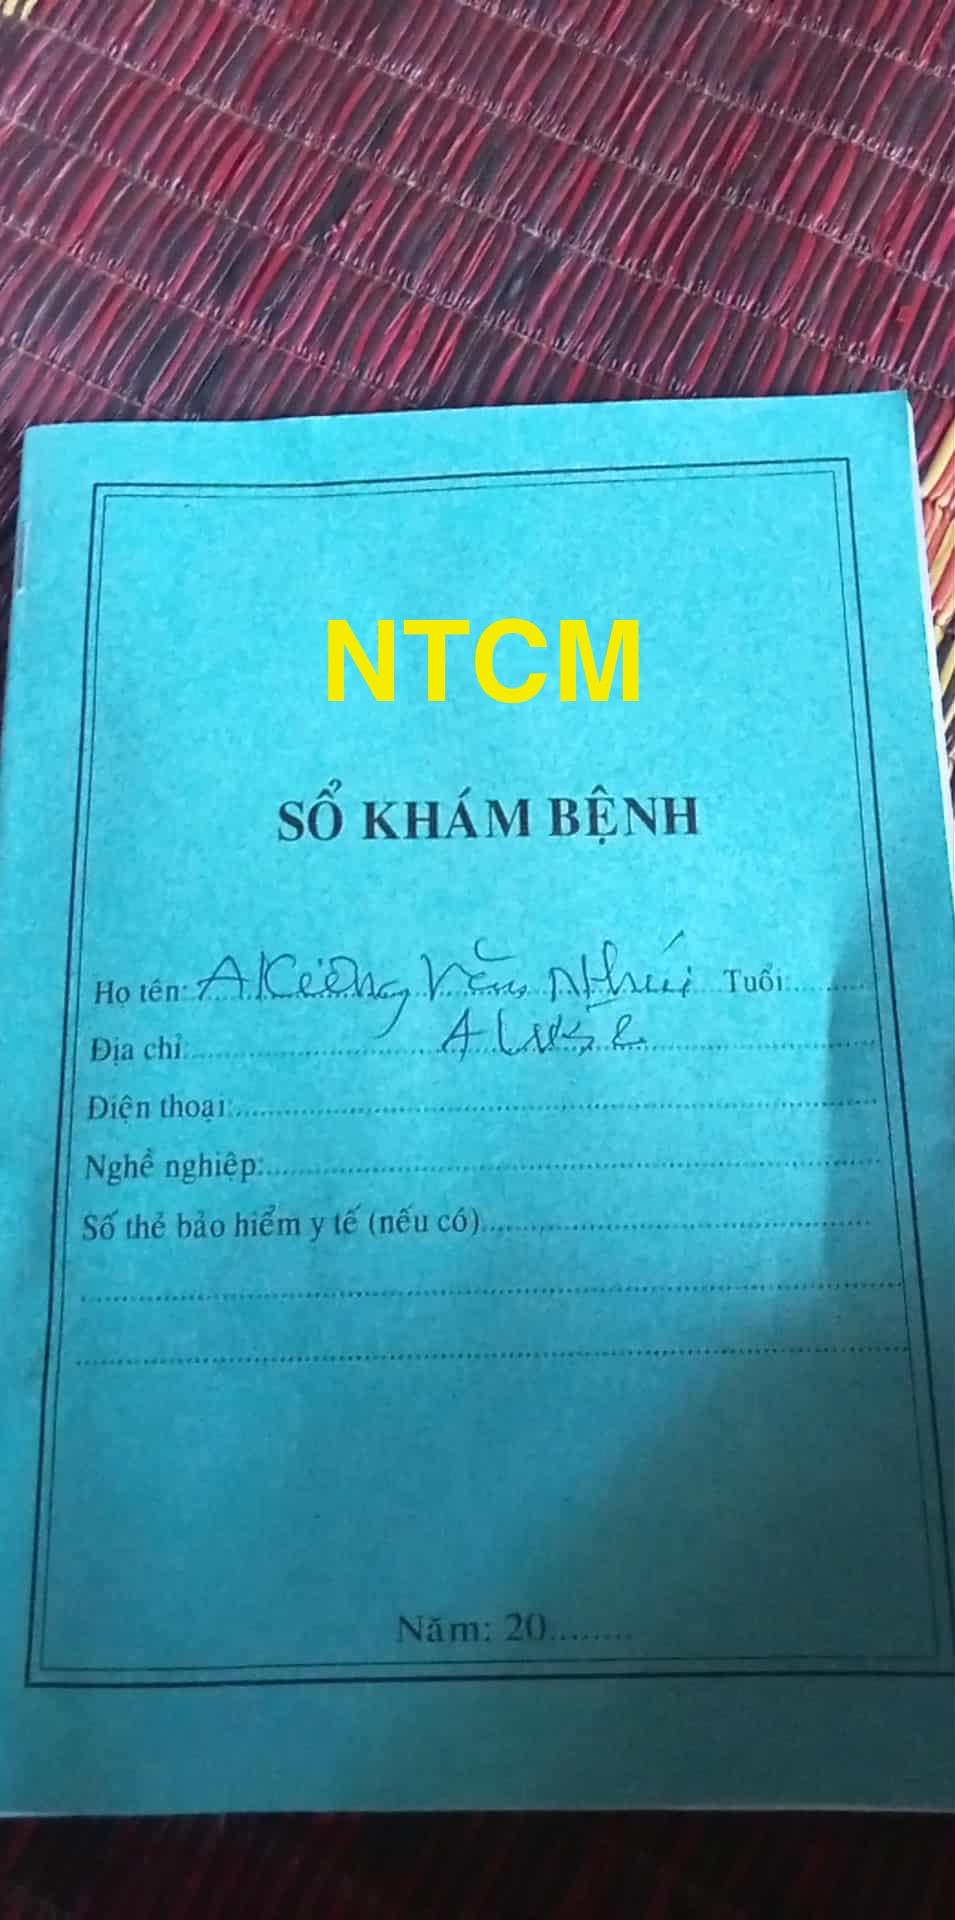 NTCM
SỔ KHÁM BỆNH
Họ tên: AKiêng Văn Nhưi Tuổi:
Địa chỉ
Điện thoại:
Nghề nghiệp:
Số thẻ bảo hiểm y tế (nếu có)
Năm: 20